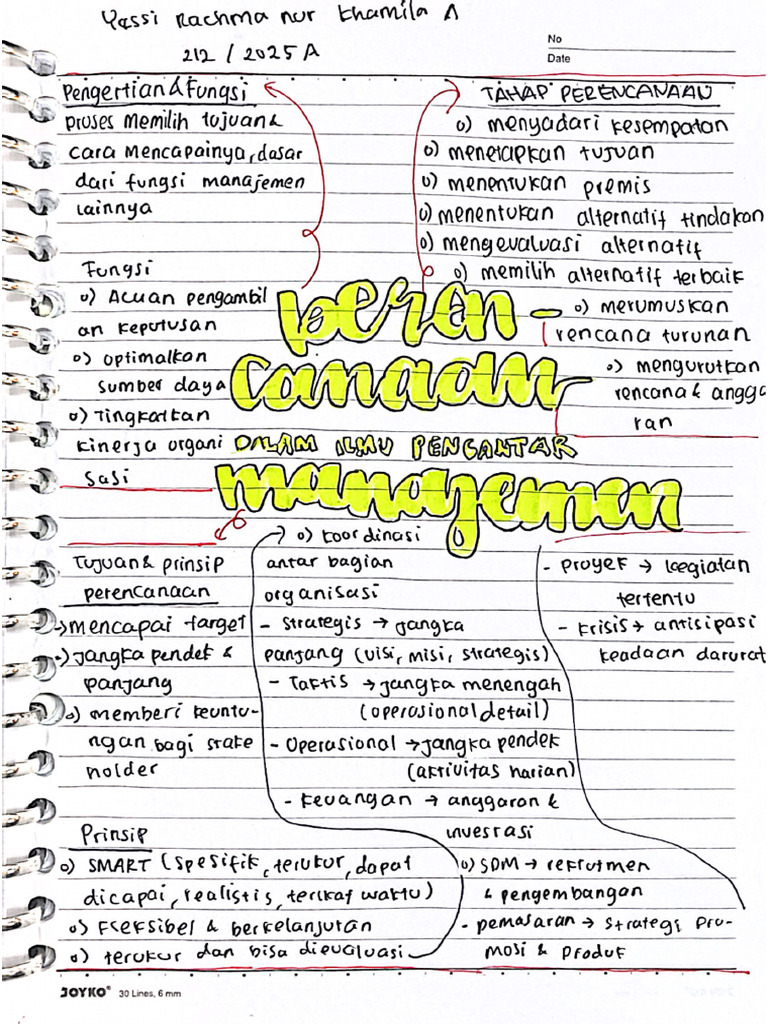 Yassi Rachma nur khamila A
212 / 2025 A
No
Date
Pengertian & Fungsi
proses memilih tujuan &
cara mencapainya, dasar
dari fungsi manajemen
lainnya
Fungsi
o) Acuan pengambil
an keputusan
o) optimalkan
sumber daya
o) Tingkatkan
kinerja organi
sasi
TAHAP PERENCANAAN
o) menyadari kesempatan
o) menetapkan tujuan
o) menentukan premis
o) menentukan alternatif tindakan
o) mengevaluasi alternatif
o) memilih alternatif terbaik
o) merumuskan
rencana turunan
o) mengurutkan
rencana & angga
ran
peren -
canaan
DALAM ILMU PENGANTAR
manajemen
Tujuan & prinsip
perencanaan
-> mencapai target
o) jangka pendek &
panjang
o) memberi keuntu-
ngan bagi stake
holder
Prinsip
o) SMART (spesifik, terukur, dapat
dicapai, realistis, terikat waktu)
o) Fseksibel & berkelanjutan
o) terukur dan bisa dievaluasi
o) koordinasi
antar bagian
organisasi
- strategis → jangka
panjang (visi, misi, strategis)
- Taktis → jangka menengah
(operasional detail)
- Operasional → jangka pendek
(aktivitas harian)
- keuangan → anggaran &
investasi
o) SDM → rekrutmen
& pengembangan
- pemasaran → strategi pro-
mosi & produk
- proyek → kegiatan
tertentu
- krisis → antisipasi
keadaan darurat
JOYKO® 30 Lines, 6 mm